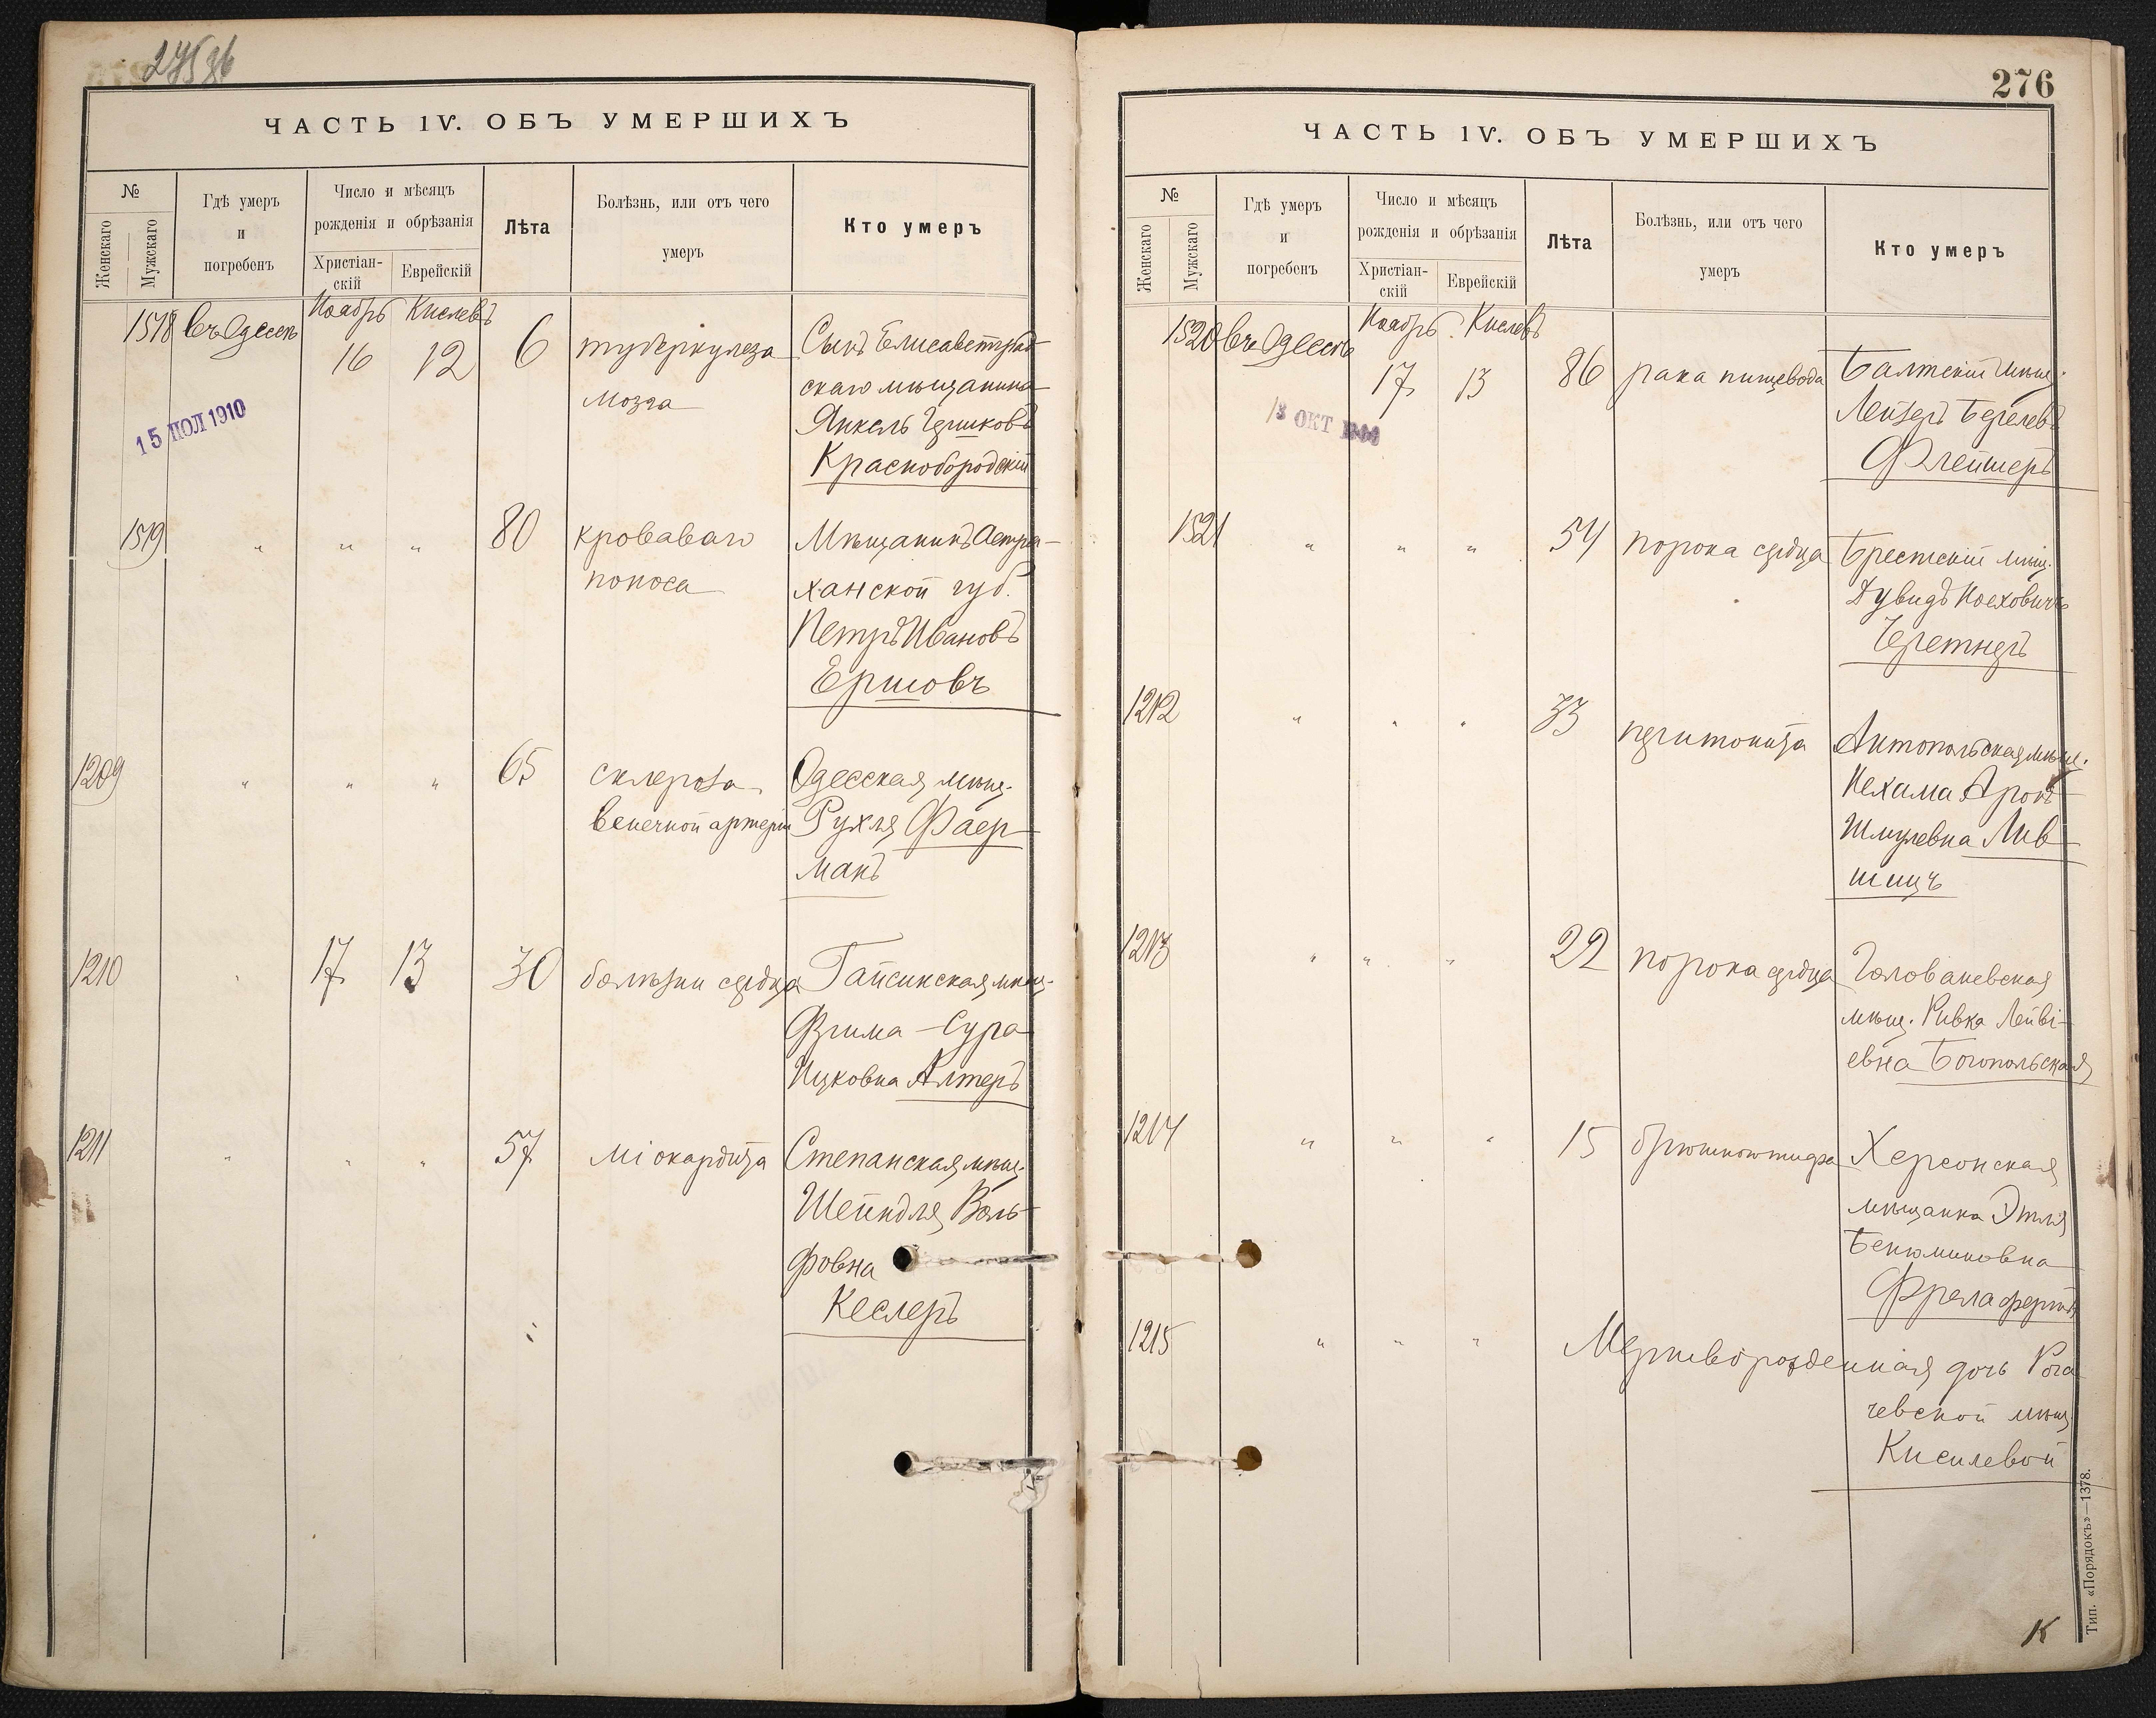 275 зв
ЧАСТЬ IV. ОБЪ УМЕРШИХЪ
№
Женскаго
Мужскаго
Гдѣ умеръ
и
погребенъ
Число и мѣсяцъ
рожденія и обрѣзанія
Христіан-
скій
Еврейскій
Лѣта
Болѣзнь, или отъ чего
умеръ
Кто умеръ
Ноябрь Кислевъ
1518 въ Одессѣ 16 12 6 туберкулеза Сынъ Елисаветград-
мозга скаго мѣщанина
Янкель Гершковъ
Краснобородскій
15 ІЮЛ 1910
1519 " " " 80 кроваваго Мѣщанинъ Астра-
поноса ханской губ.
Петръ Ивановъ
Ершовъ
1209 " " " 65 склероза Одесская мѣщ.
венечной артеріи Рухля Фаер-
манъ
1210 " 17 13 30 болѣзни сердца Гайсинская мѣщ.
Фрима-Сура
Ицковна Алтеръ
1211 " " " 57 міокардита Степанская мѣщ.
Шейндля Воль-
фовна
Кеслеръ
276
ЧАСТЬ IV. ОБЪ УМЕРШИХЪ
№
Женскаго
Мужскаго
Гдѣ умеръ
и
погребенъ
Число и мѣсяцъ
рожденія и обрѣзанія
Христіан-
скій
Еврейскій
Лѣта
Болѣзнь, или отъ чего
умеръ
Кто умеръ
Ноябрь Кислевъ
1520 въ Одессѣ 17 13 86 рака пищевода Балтскій мѣщ.
Лейзеръ Берелевъ
Флейшеръ
ОКТ
1521 " " " 54 порока сердца Брестскій мѣщ.
Дувидъ
1212 " " " 33 перитонита Антопольская мѣщ.
Нехама Аронъ-
Шмулевна Лив-
шицъ
1213 " " " 22 порока сердца Голованевская
мѣщ. Ривка Лейбі-
евна Богопольская
1214 " " " 15 брюшного тифа Херсонская
мѣщанка Этля
Бенюминовна
1215 " " " Мертворожденная дочь Рога-
чевской мѣщ.
Кисилевой
К
Тип. «Порядокъ»—1378.